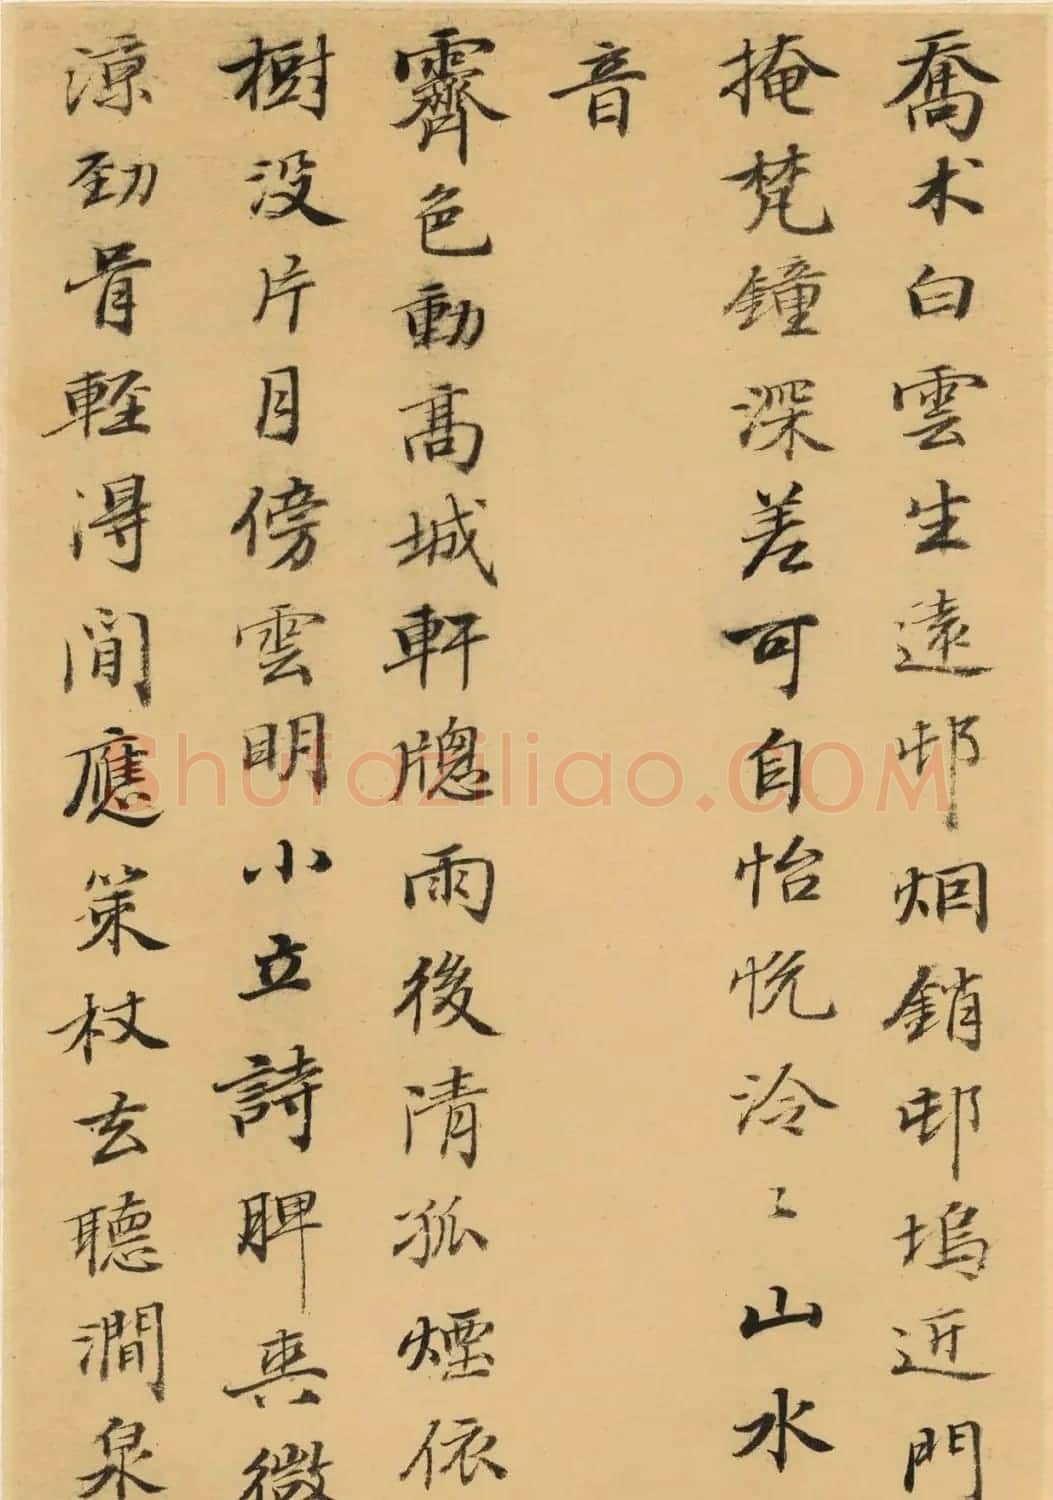 喬木白雲生遠邨烟銷邨塢近門
掩梵鐘深差可自怡悦泠〻山水
音
霽色動髙城軒牕雨後清孤煙依
樹没片月傍雲明小立詩脾爽微
涼勁骨輕得閒應策杖去聽澗泉
shufaziliao.COM